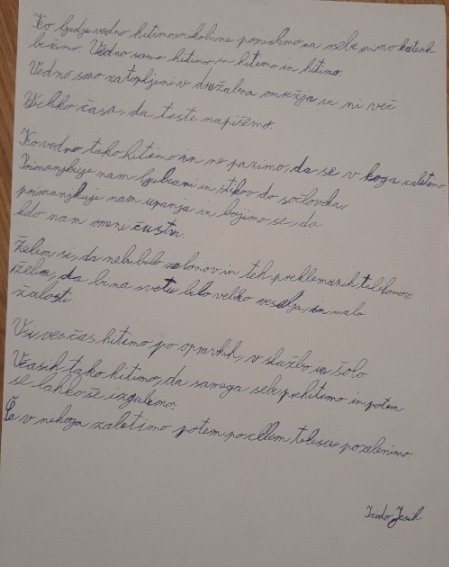 Ko ljudje vedno hitimo nikoli ne pomislimo na sebe in mo katerih
bežimo. Vedno samo hitimo in hitimo in hitimo.
Vedno smo zatopljeni v družabna omrežja in ni več
Veliko časa, da tiste napišemo.
Ko vedno tako hitimo in ne pazimo, da se v koga zaletimo
Primanjkuje nam ljubezni in stikov do sočloveka
primanjkuje nam upanja in bojimo se, da
kdo nam omeni čustva.
Želim si, da ne bi bilo in teh preklemanih telefonov
želim, da bi na svetu bilo veliko veselja, in malo
žalosti.
Vsi ves čas hitimo po opravkih, v službo in šolo.
Včasih tako hitimo, da samega sebe prehitimo in potem
se lahko še izgubimo.
Če v nekoga zaletimo potem po celem telesu pozelenimo
Jesih